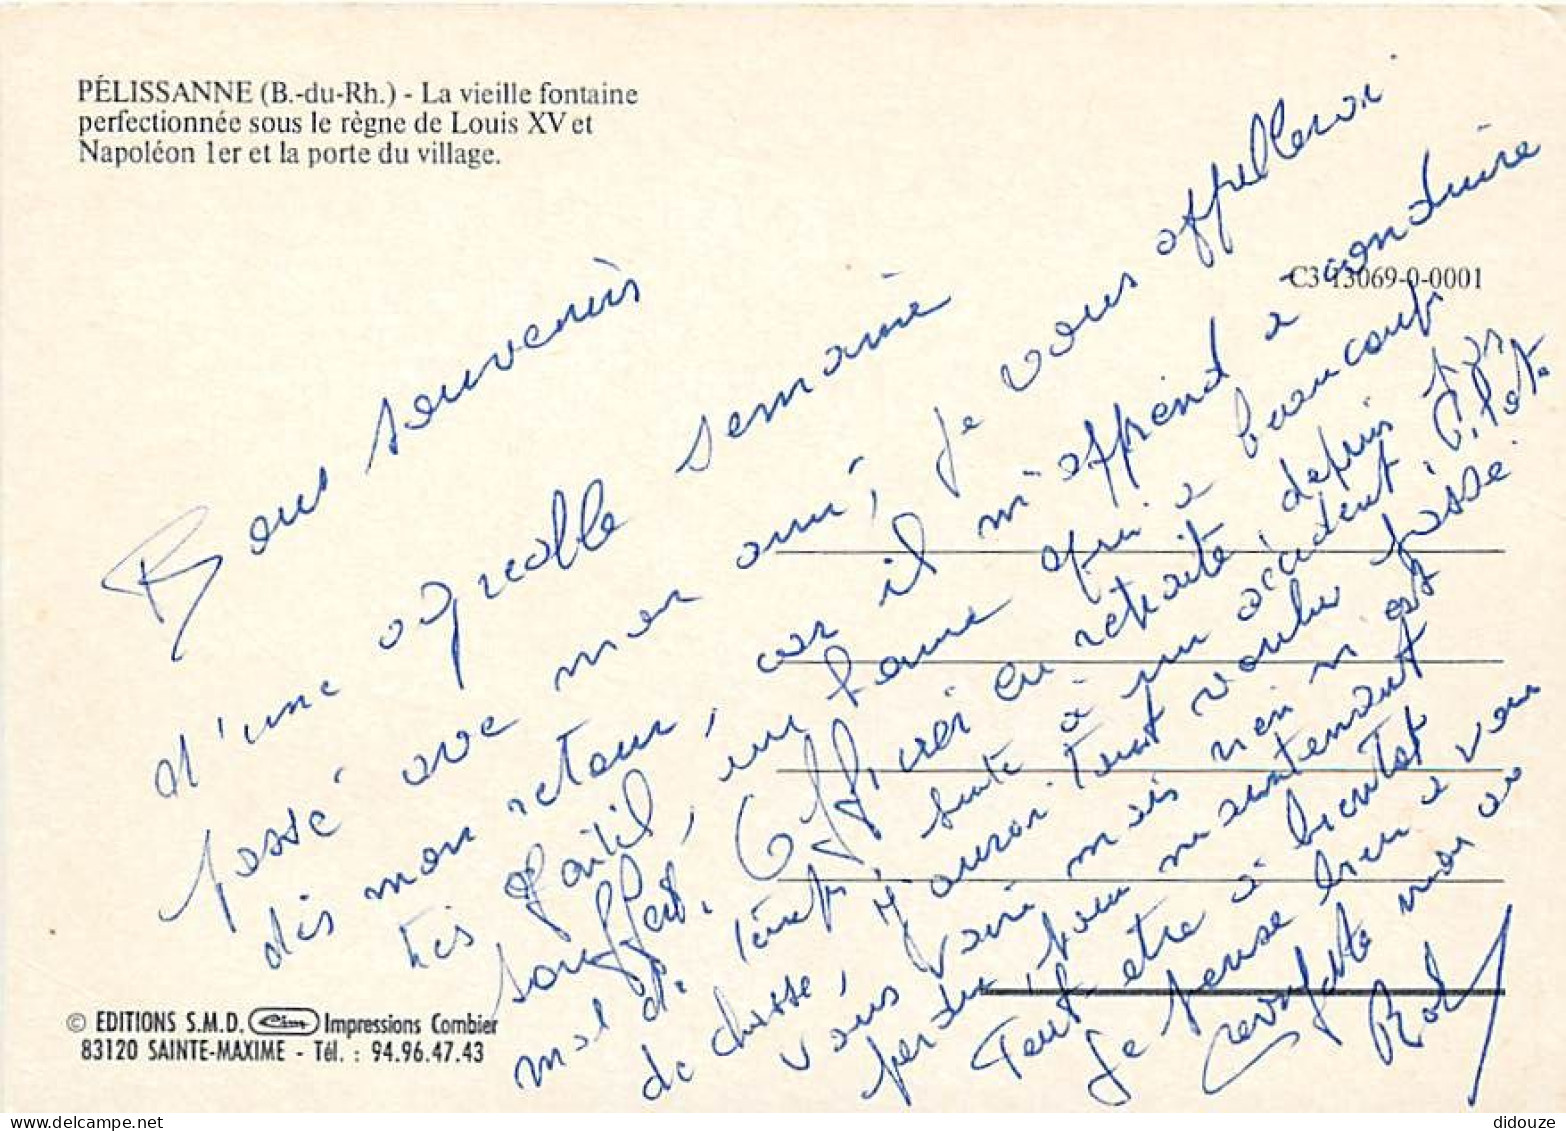 PÉLISSANNE (B.-du-Rh.) - La vieille fontaine
perfectionnée sous le règne de Louis XV et
Napoléon 1er et la porte du village.
C3 13069-0-0001
Bons souvenirs
d'une agréable semaine
passé avec mon ami, je vous appellerai
dès mon retour, car il m'apprend a conduire
très gentil, un homme qui a beaucoup
souffert. Officier en retraite, depuis pas
mal de temps, suite à un accident Pilot.
de chasse, j'aurai tout voulu passé
vous voir mais rien n'est
perdu, pour maintenant
Peut-être à bientot
Je pense bien a vous
au
Rob
© EDITIONS S.M.D. Cim Impressions Combier
83120 SAINTE-MAXIME - Tél. : 94.96.47.43
didouze